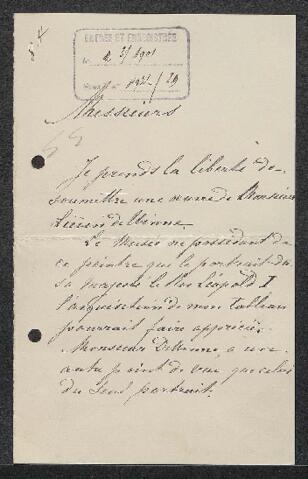 ENTRÉE ET ENREGISTRÉE
Le 2/5 1901
N° 1921/29
Messieurs
Je prends la liberté de
soumettre une œuvre de Monsieur
Liévin deWinne.
Le Musée ne possédant de
ce peintre que le portrait du
sa Majesté le Roi Léopold I
l'acquisition de mon tableau
pourrait faire apprécier
Monsieur DeWinne, a un
autre point de vue que celui
du seul portrait.